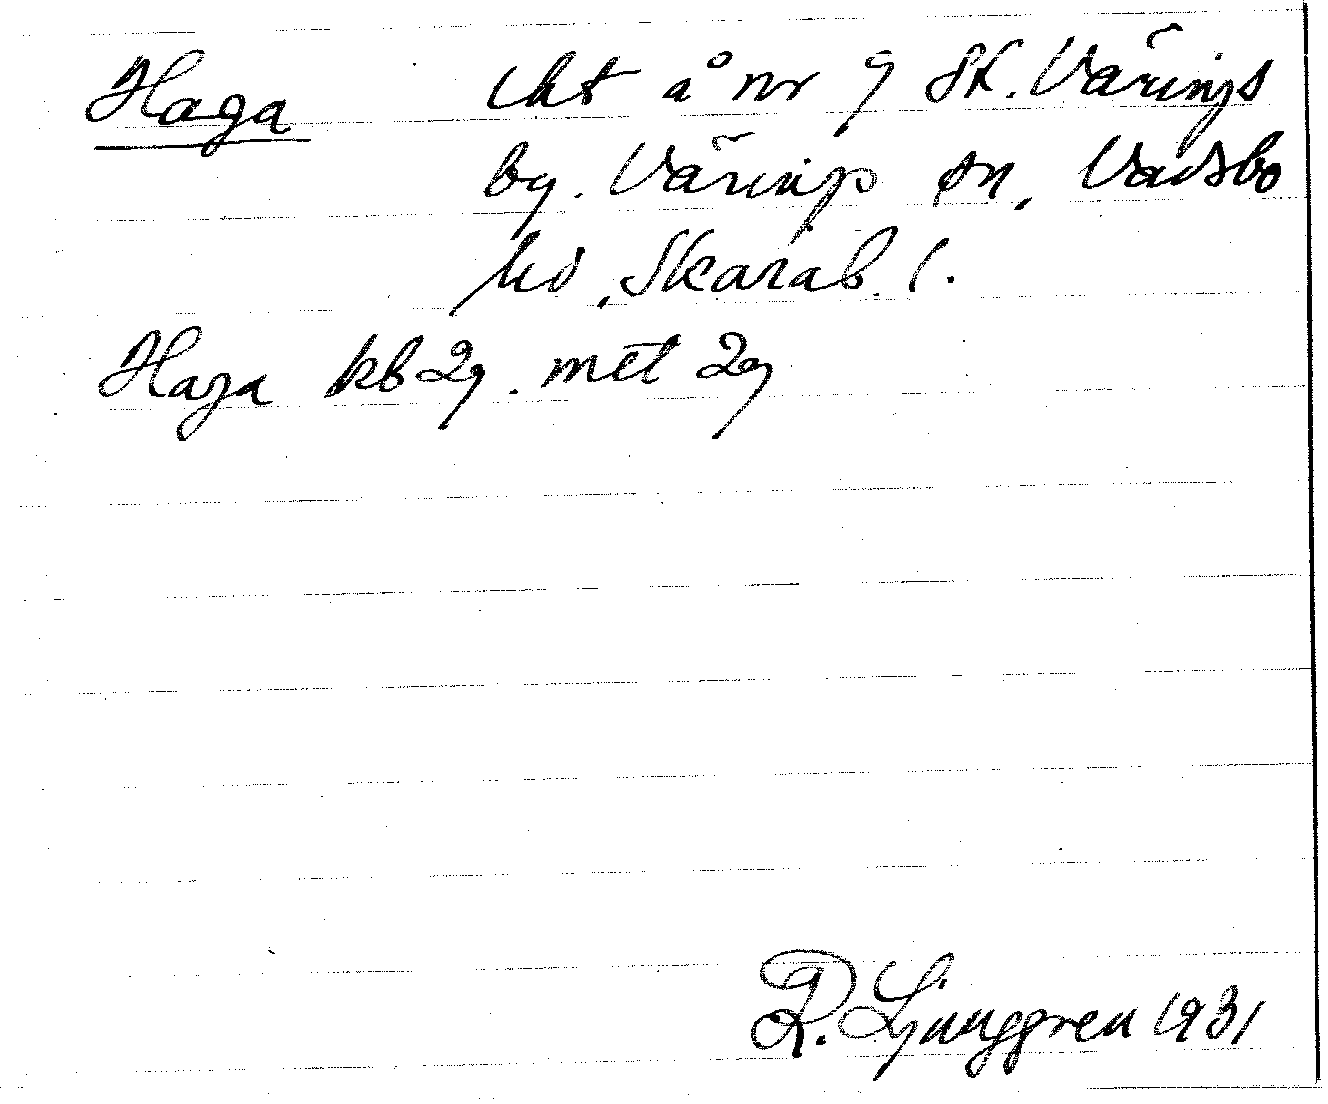 Haga lht å nr 9 Sk. Värings
by. Värings sn, Vadsbo
hd, Skarab. l.
Haga kb 29. mtl 29
R. Ljunggren 1931